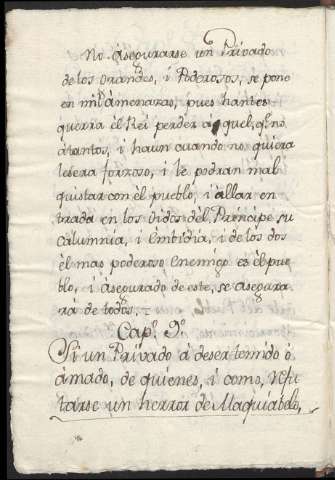 No asegurarse un Privado
de los Grandes, i Poderosos, se pone
en mil amenazas, pues hantes
querra èl Rei perder a quel, q.e no
átantos, i haun cuando no quiera
le sera forzoso, i le podran mal
quistar con èl pueblo, i àllar en
trada en los òidos del Principe su
calumnia, i Embidia, i de los dos
èl mas poderoso Enemigo es èl pue
blo, i àsegurado de este, se asegura
rà de todos. =
Cap.o 9.o
Si un Privado à de ser temido ò
àmado, de quienes, i como, refu
tarse un herror de Maquiabelo,